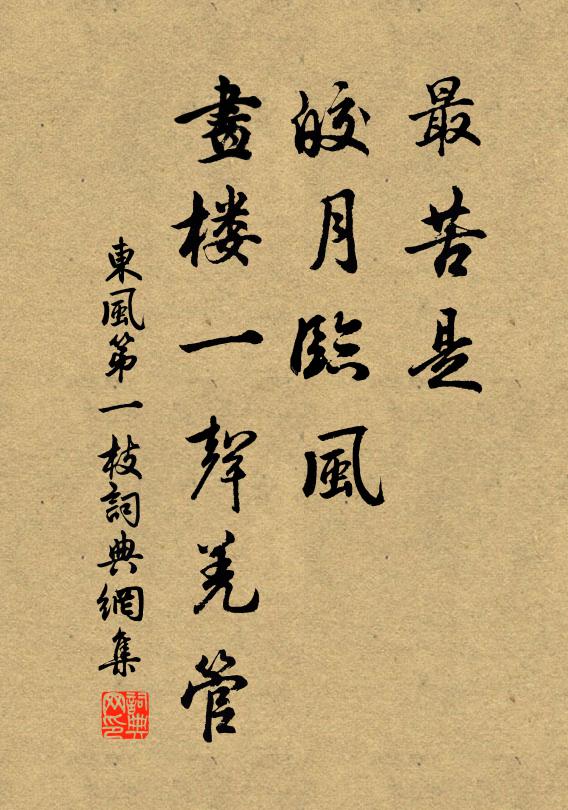 最苦是
皎月臨風
畫楼一聲羌管
東風第一枝詞典網集
詞典网印